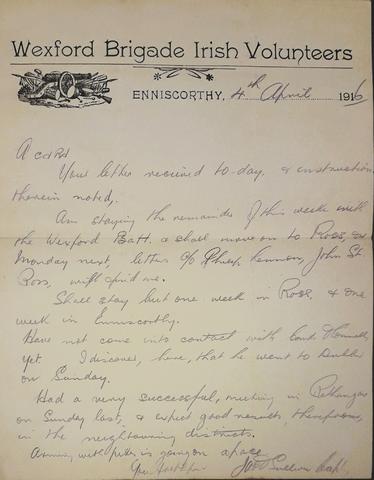 Wexford Brigade Irish Volunteers
ENNISCORTHY, 4th April 1916
A card
Your letter received to-day, & instructions
therein noted.
Am staying the remainder of this week with
the Wexford Batt. & shall move on to Ross, on
Monday next, letters c/o Philip Lennon, John St
Ross, will find me.
Shall stay but one week in Ross, & one
week in Enniscorthy.
Have not come into contact with Comdt O'Connell
yet. I discover, here, that he went to Dublin
on Sunday.
Had a very successful, meeting in
on Sunday last, & expect good results, therefrom,
in the neighbouring districts.
Arming with pikes is going on apace.
Sullivan Capt.